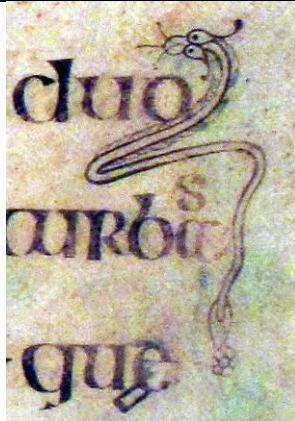 duo
turbas
que